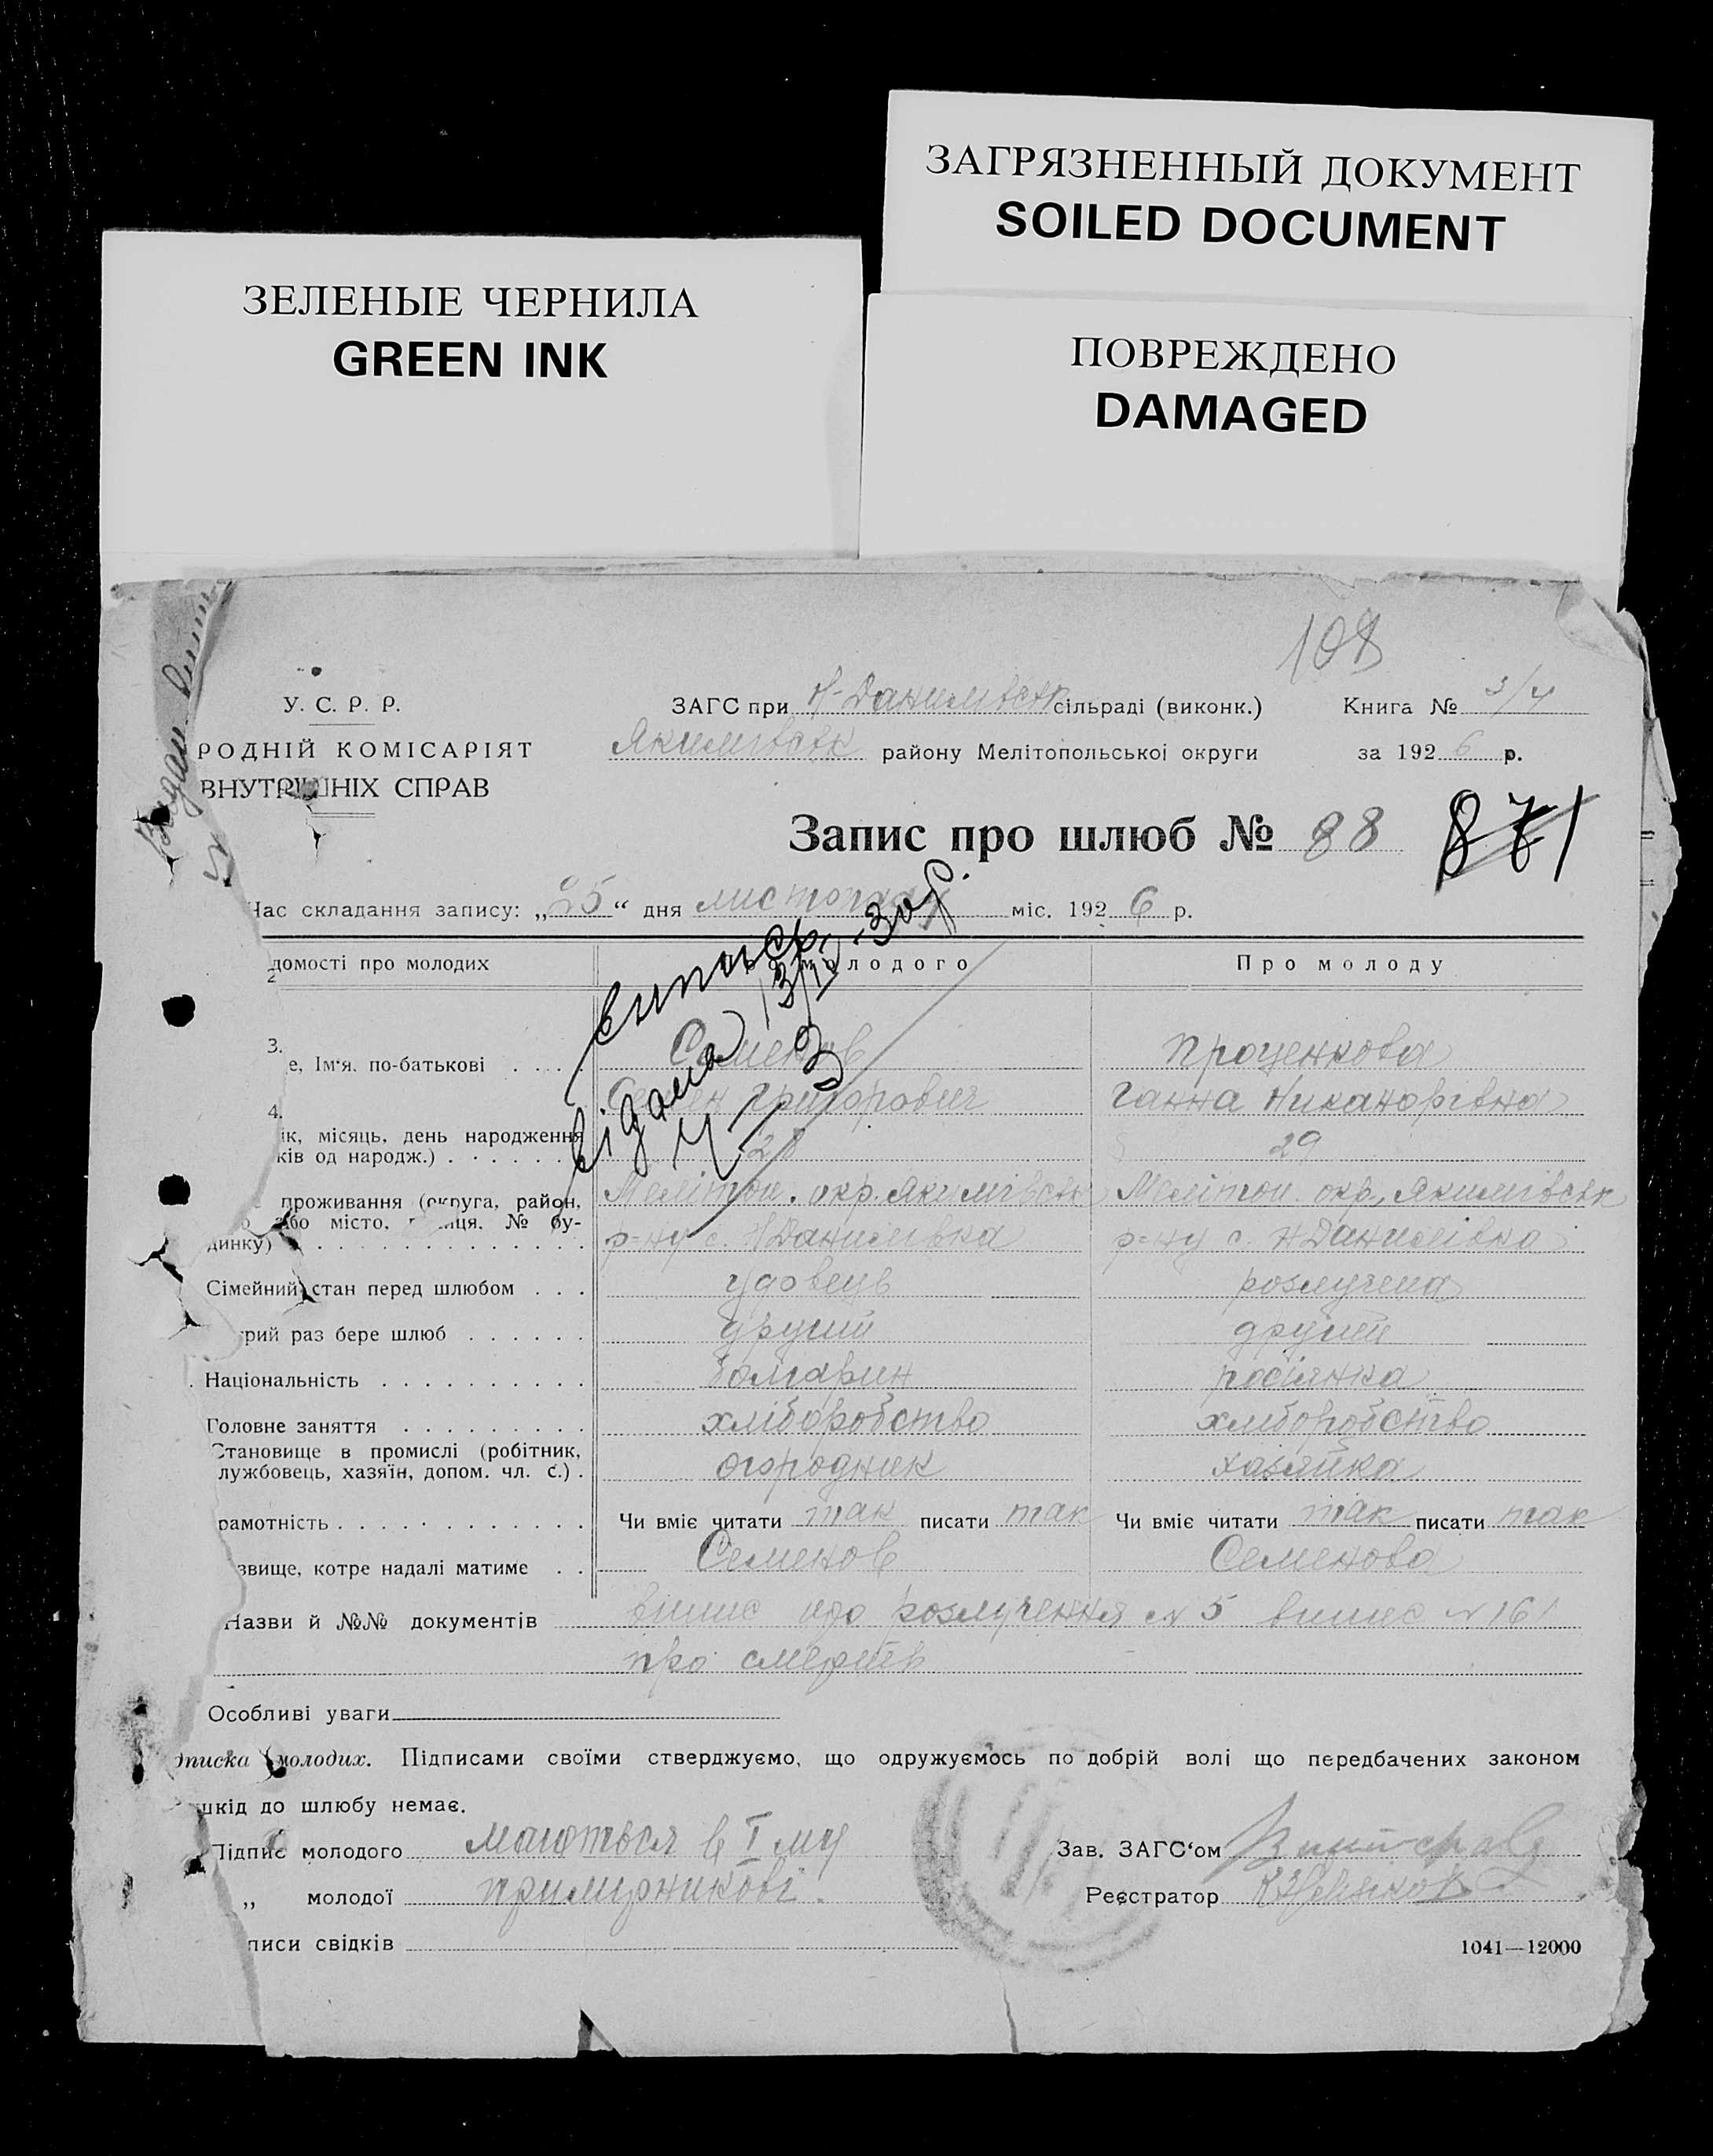 ЗАГРЯЗНЕННЫЙ ДОКУМЕНТ
SOILED DOCUMENT
ЗЕЛЕНЫЕ ЧЕРНИЛА
GREEN INK
ПОВРЕЖДЕНО
DAMAGED
108
У. С. Р. Р.
ЗАГС при Н-Данилівськ сільраді (виконк.)
Книга № 3/4
РОДНІЙ КОМІСАРІЯТ
Якимівськ району Мелітопольської округи
за 1926 р.
ВНУТРІШНІХ СПРАВ
Запис про шлюб № 88 871
Час складання запису: „25“ дня листопада міс. 1926 р.
випись
видана 13/IV-30 р.
домості про молодих
молодого
Про молоду
3.
е, Ім'я. по-батькові . . . .
Семенов
Проценкова
Семен Григорович
Ганна Никанорівна
4.
ік, місяць, день народження
ків од народж.) . . . . . .
28
29
проживання (округа, район,
або місто, вулиця, № бу-
динку) . . . . . . . . . . . . .
Меліт
оп. окр. Якимівськ
Мелітоп. окр, Якимівськ
р=ну с. НДанилівка
р=ну с. НДанилівка
Сімейний стан перед шлюбом . . .
удовець
розлучена
трий раз бере шлюб . . . . . .
другий
другий
Національність . . . . . . . . . .
болгарин
росіянка
Головне заняття . . . . . . . . .
хліборобство
хліборобство
Становище в промислі (робітник,
лужбовець, хазяїн, допом. чл. с.) .
огородник
хазяйка
рамотність . . . . . . . . . . . .
Чи вміє читати так писати так
Чи вміє читати так писати так
звище, котре надалі матиме . .
Семенов
Семенова
Назви й №№ документів
випис про розлучення № 5 випис № 161
про смерть
Особливі уваги
дписка молодих. Підписами своїми стверджуємо, що одружуємось по добрій волі що передбачених законом
шкід до шлюбу немає.
Підпис молодого маються в I му
Зав. ЗАГС'ом
„ молодої примірникові.
Реєстратор
писи свідків
1041—12000